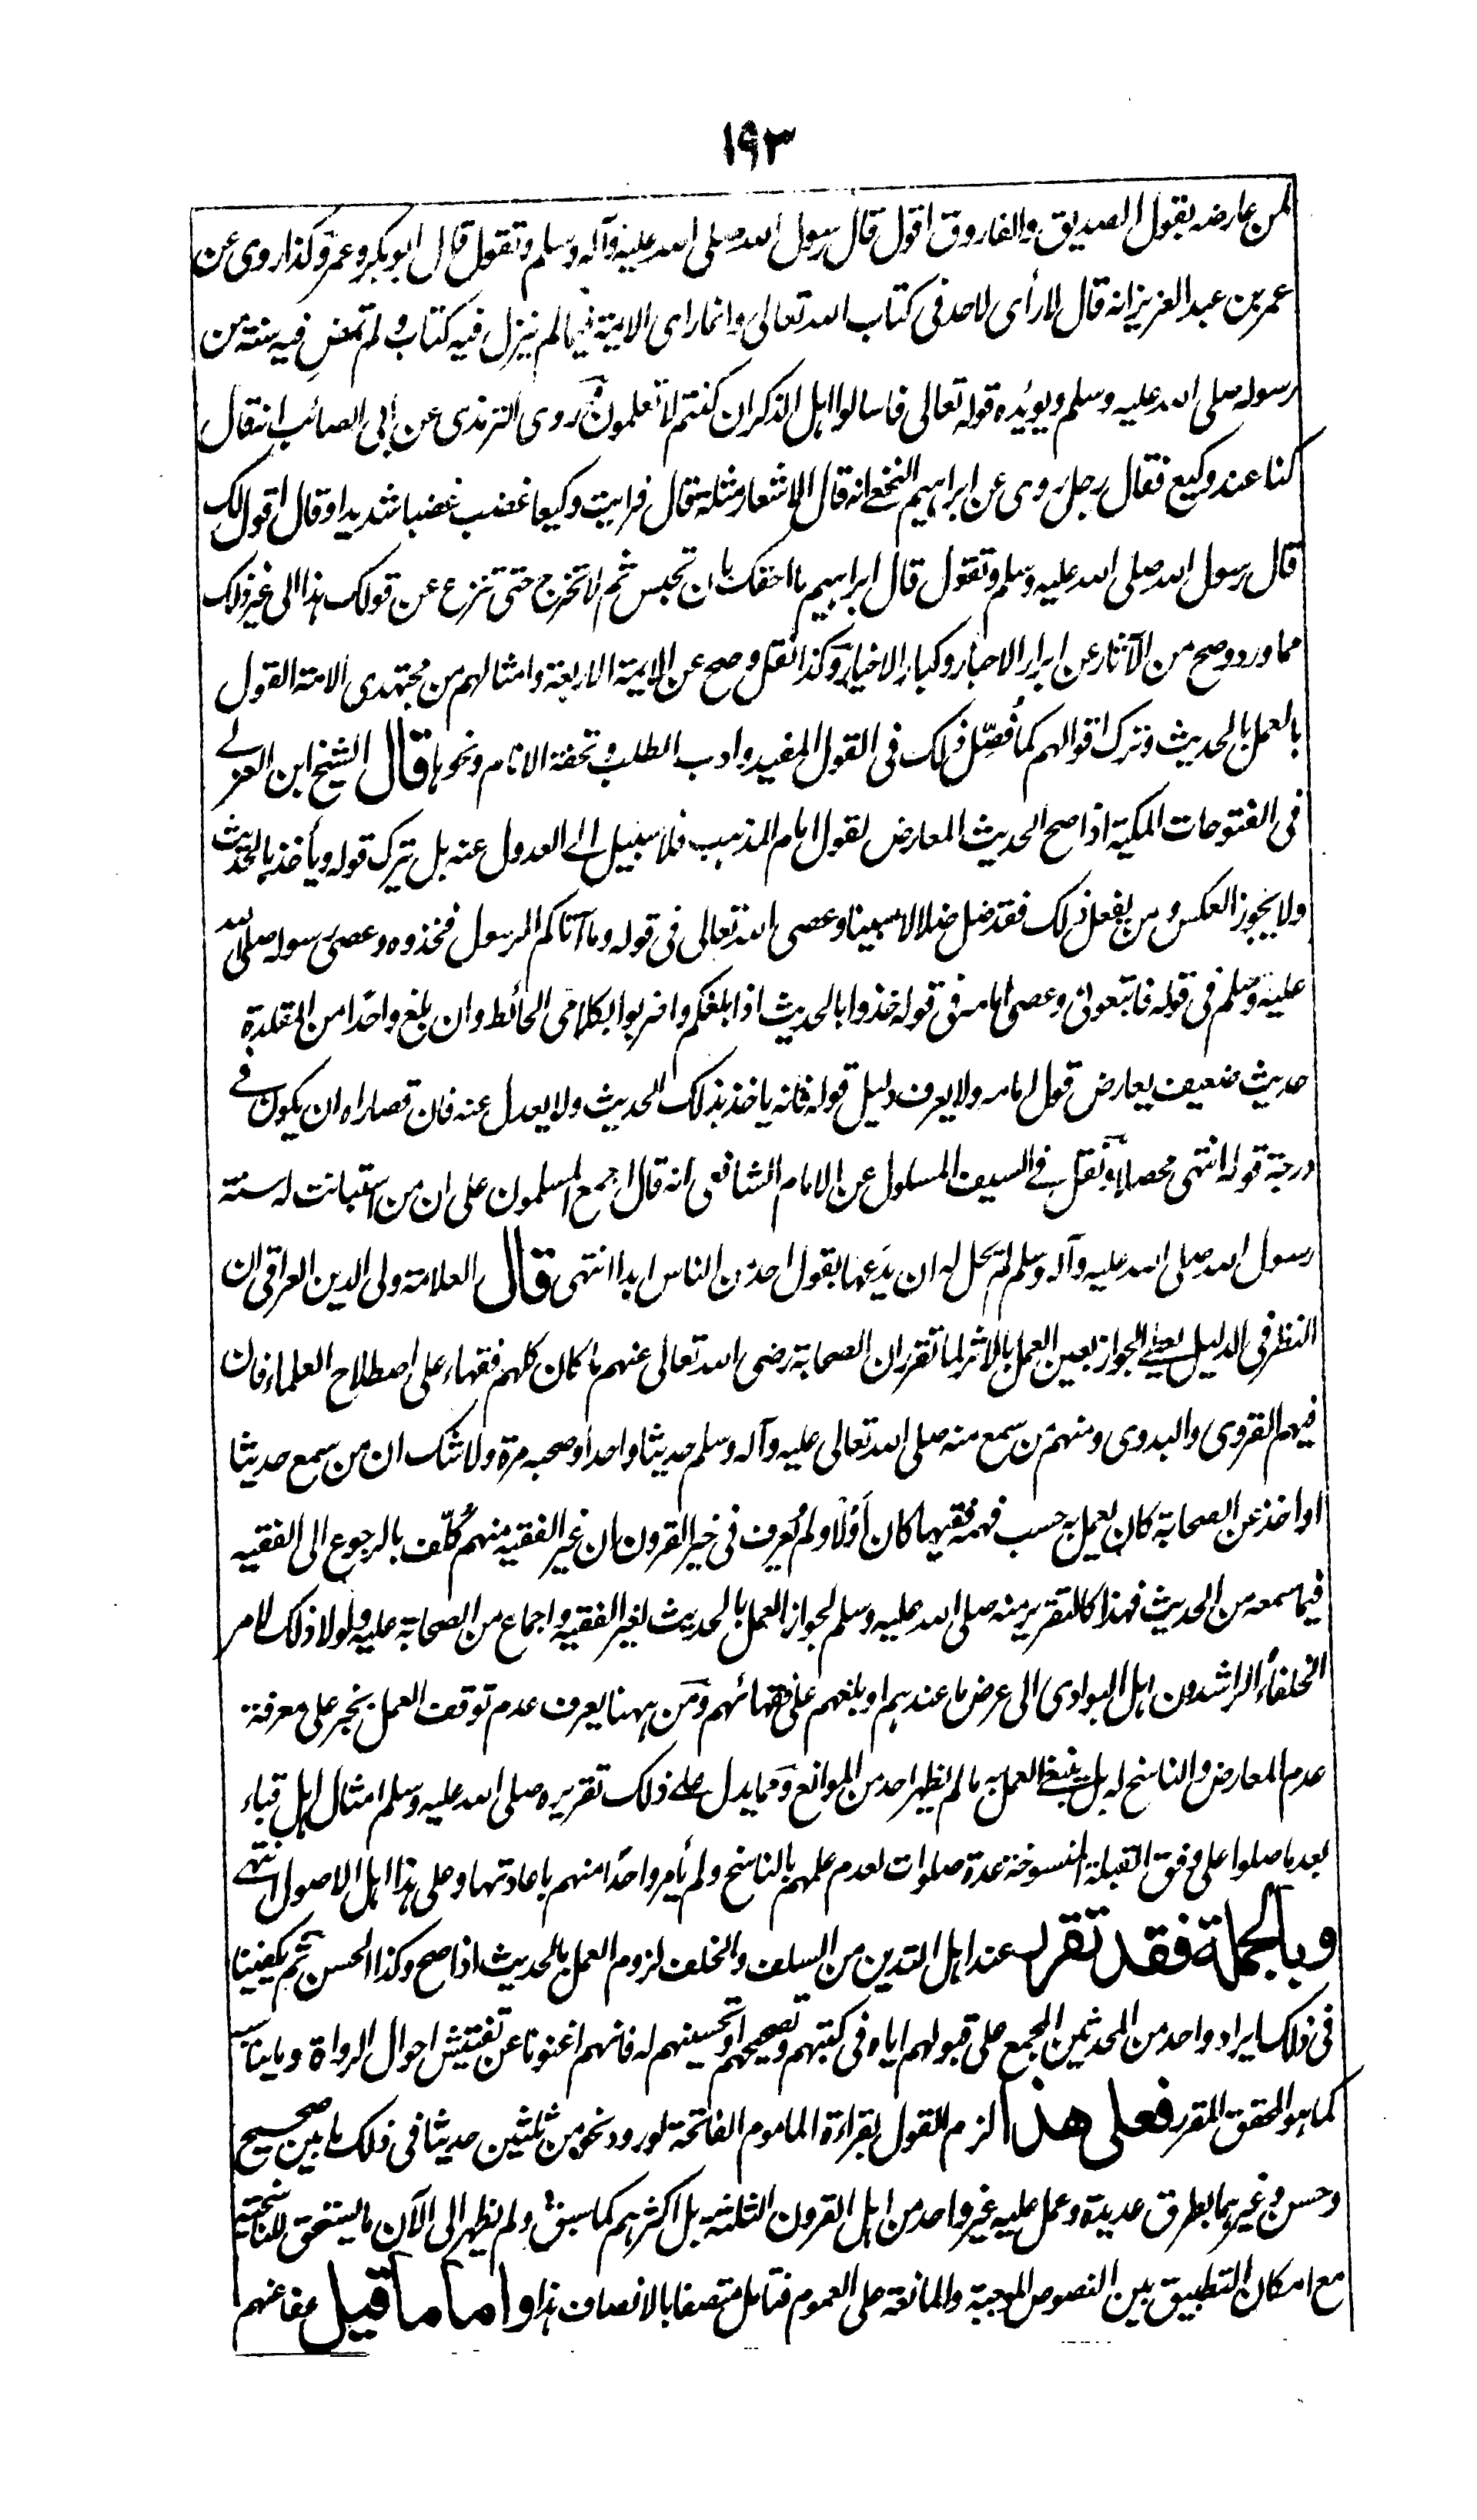 ١٩٣
لمن عارضه بقول الصديق والفاروق اقول قال رسول الله صلى الله عليه وآله وسلم وتقول قال ابوبكر وعمر وكذا روى عن
عمر بن عبد العزيز انه قال لا رأى لاحد فى كتاب الله تعالى وانما راى الايمة فيما لم ينزل فيه كتاب ولم تمض فيه سنة من
رسوله صلى الله عليه وسلم ويويده قوله تعالى فاسالوا اهل الذكر ان كنتم لا تعلمون وروى الترمذى عن ابى الصائب انه قال
كنا عند وكيع فقال رجل روى عن ابراهيم النخعى انه قال الاشعار مثلة قال فرايت وكيعا غضب غضبا شديدا وقال اقول لك
قال رسول الله صلى الله عليه وسلم وتقول قال ابراهيم ما احقك بان تحبس ثم لا تخرج حتى تنزع عن قولك هذا الى غير ذلك
مما ورد وصح من الآثار عن ابرار الاحبار وكبار الاخيار وكذا نقل وصح عن الايمة الاربعة وامثالهم من مجتهدى الامة القول
بالعمل بالحديث وترك اقوالهم كما فُصّل ذلك فى القول المفيد وادب الطلب وتحفة الانام ونحوها قال الشيخ ابن العربى
فى الفتوحات المكية اذا صح الحديث المعارض لقول امام المذهب فلا سبيل الى العدول عنه بل يترك قوله ويأخذ بالحديث
ولا يجوز العكس ومن يفعل ذلك فقد ضل ضلالا مبينا وعصى الله تعالى فى قوله وما آتاكم الرسول فخذوه وعصى رسوله صلى الله
عليه وسلم فى قوله فاتبعونى وعصى امامه فى قوله خذوا بالحديث اذا بلغكم واضربوا بكلامى الحائط وان بلغ واحدا من المقلدة
حديث ضعيف يعارض قول امامه ولا يعرف دليل قوله فانه ياخذ بذلك الحديث ولا يعدل عنه فان قصاراه ان يكون فى
درجة قوله انتهى محصلا ونقل فى السيف المسلول عن الامام الشافعى انه قال اجمع المسلمون على ان من استبانت له سنة
رسول الله صلى الله عليه وآله وسلم لم يحل له ان يدعها بقول احد من الناس ابدا انتهى قال العلامة ولى الدين العراقى ان
النظر فى الدليل يعطى الجواز بعين العمل بالاثر لما تقرر ان الصحابة رضى الله تعالى عنهم ما كان كلهم فقهاء على اصطلاح العلماء فان
فيهم القروى والبدوى ومنهم من سمع منه صلى الله تعالى عليه وآله وسلم حديثا واحدا وصحبه مرة ولا شك ان من سمع حديثا
او اخذ عن الصحابة كان يعمل به حسب فهمه فقيها كان أَوْلَا ولم يُعرف فى خير القرون ان غير الفقيه منهم كُلّف بالرجوع الى الفقيه
فيما سمعه من الحديث فهذا كالتقرير منه صلى الله عليه وسلم لجواز العمل بالحديث لغير الفقيه واجماع من الصحابة عليه ولولا ذلك لامر
الخلفاء الراشدون اهل البوادى الى عرض ما عندهم او بلغهم على فقهائهم ومن ههنا يعرف عدم توقف العمل بخبر على معرفة
عدم المعارض والناسخ له بل ينبغى العمل به ما لم يظهر احد من الموانع ومما يدل على ذلك تقريره صلى الله عليه وسلم امثال اهل قباء
بعد ما صلوا على وفق القبلة المنسوخة عدة صلوات لعدم علمهم بالناسخ ولم يأمر واحدا منهم باعادتها وعلى هذا اهل الاصول انتهى
وبالجملة فقد تقرر عند اهل التدين من السلف والخلف لزوم العمل بالحديث اذا صح وكذا الحسن ثم يكفينا
فى ذلك ايراد واحد من المحدثين المجمع على قبولهم اياه فى كتبهم وتصحيحهم او تحسينهم له فانهم اغنونا عن تفتيش احوال الرواة وما يناسبه
كما هو المحقق المقرر فعلى هذا لزم القول بقراءة الماموم الفاتحة لورود نحو من ثلثين حديثا فى ذلك ما بين صحيح
وحسن وغيرهما بطرق عديدة وعمل عليه غير واحد من اهل القرون الثلثة بل اكثرهم كما سبق ولم يظهر الى الآن ما يستحق للناسخية
مع امكان التطبيق بين النصوص الموجبة والمانعة على العموم فتامل متصفا بالانصاف هذا واما ما قيل عفا عنهم